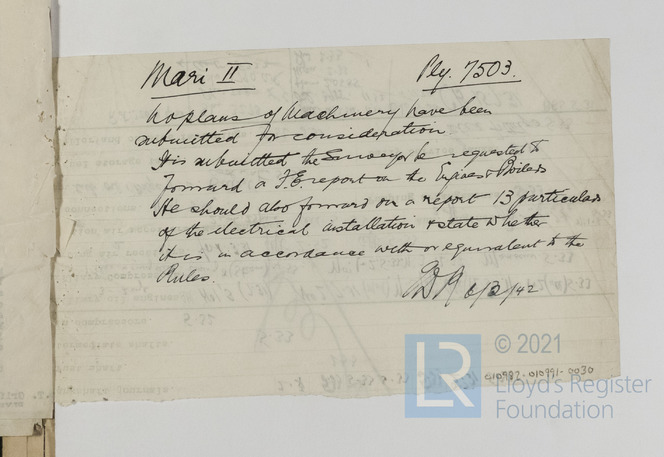 Mari II Ply. 7503.
No plans of Machinery have been
submitted for consideration
It is submitted the Surveyor be requested to
forward a F.E. report on the Engines & Boilers
He should also forward on a report 13 particulars
of the electrical installation & state whether
it is in accordance with or equivalent to the
Rules.
6/3/42
© 2021
LR
Lloyd's Register
Foundation
010982-010991-0030